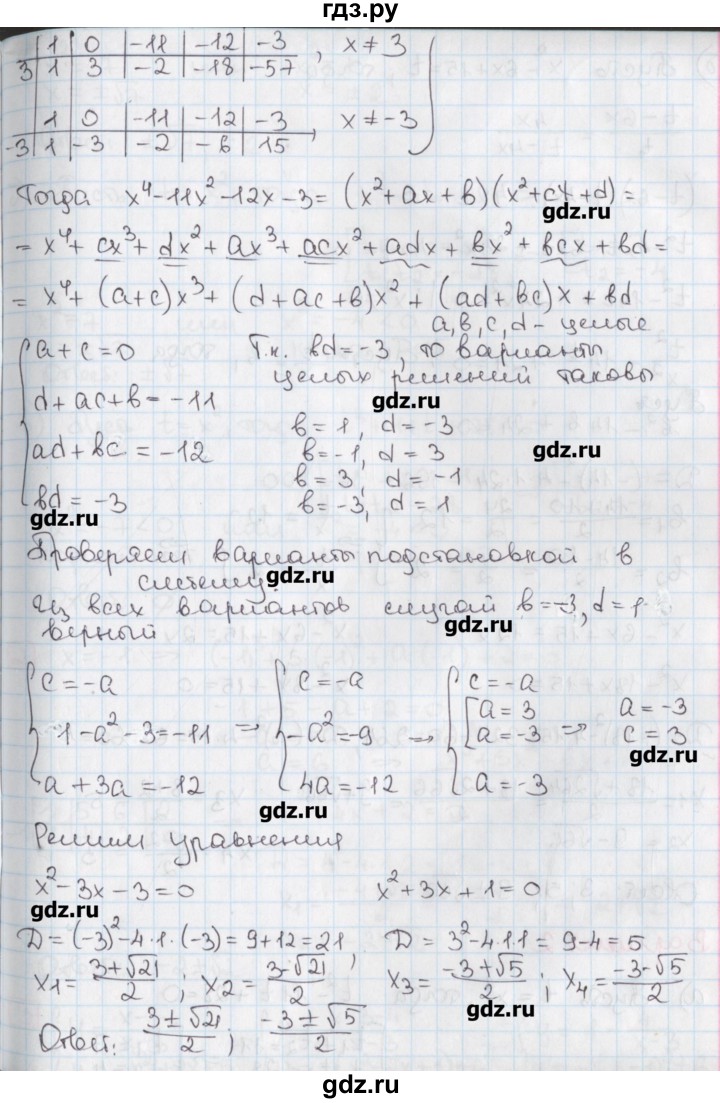 гдз.ру
| 1 | 0 | -11 | -12 | -3 , x ≠ 3
3 | 1 | 3 | -2 | -18 | -57
| 1 | 0 | -11 | -12 | -3
-3 | 1 | -3 | -2 | -6 | 15 , x ≠ -3
Тогда x⁴-11x²-12x-3=(x²+ax+в)(x²+cx+d)=
gdz.ru
= x⁴+cx³+dx²+ax³+acx²+adx+вx²+вcx+вd=
= x⁴+(a+c)x³+(d+ac+в)x²+(ad+вc)x+вd
a,в,c,d - целые
{a+c=0
d+ac+в=-11
ad+вc=-12
вd=-3
gdz.ru
Т.к. вd=-3, то варианты
целых решений таковы
gdz.ru
в=1, d=-3
в=-1, d=3 gdz.ru
в=3, d=-1
в=-3, d=1
Проверяем варианты подстановкой в
систему. gdz.ru
Из всех вариантов случай в=-3, d=1
верный gdz.ru
{c=-a
1-a²-3=-11
a+3a=-12
⇒ {c=-a
-a²=-9
4a=-12
gdz.ru
⇒ {c=-a
[a=3
a=-3
a=-3
⇒ a=-3
c=3
gdz.ru
Решим уравнения
x²-3x-3=0 x²+3x+1=0
gdz.ru
D=(-3)²-4·1·(-3)=9+12=21, D=3²-4·1·1=9-4=5
x₁=(3+√21)/2; x₂=(3-√21)/2 x₃=(-3+√5)/2; x₄=(-3-√5)/2
gdz.ru
Ответ: (3±√21)/2; (-3±√5)/2
gdz.ru